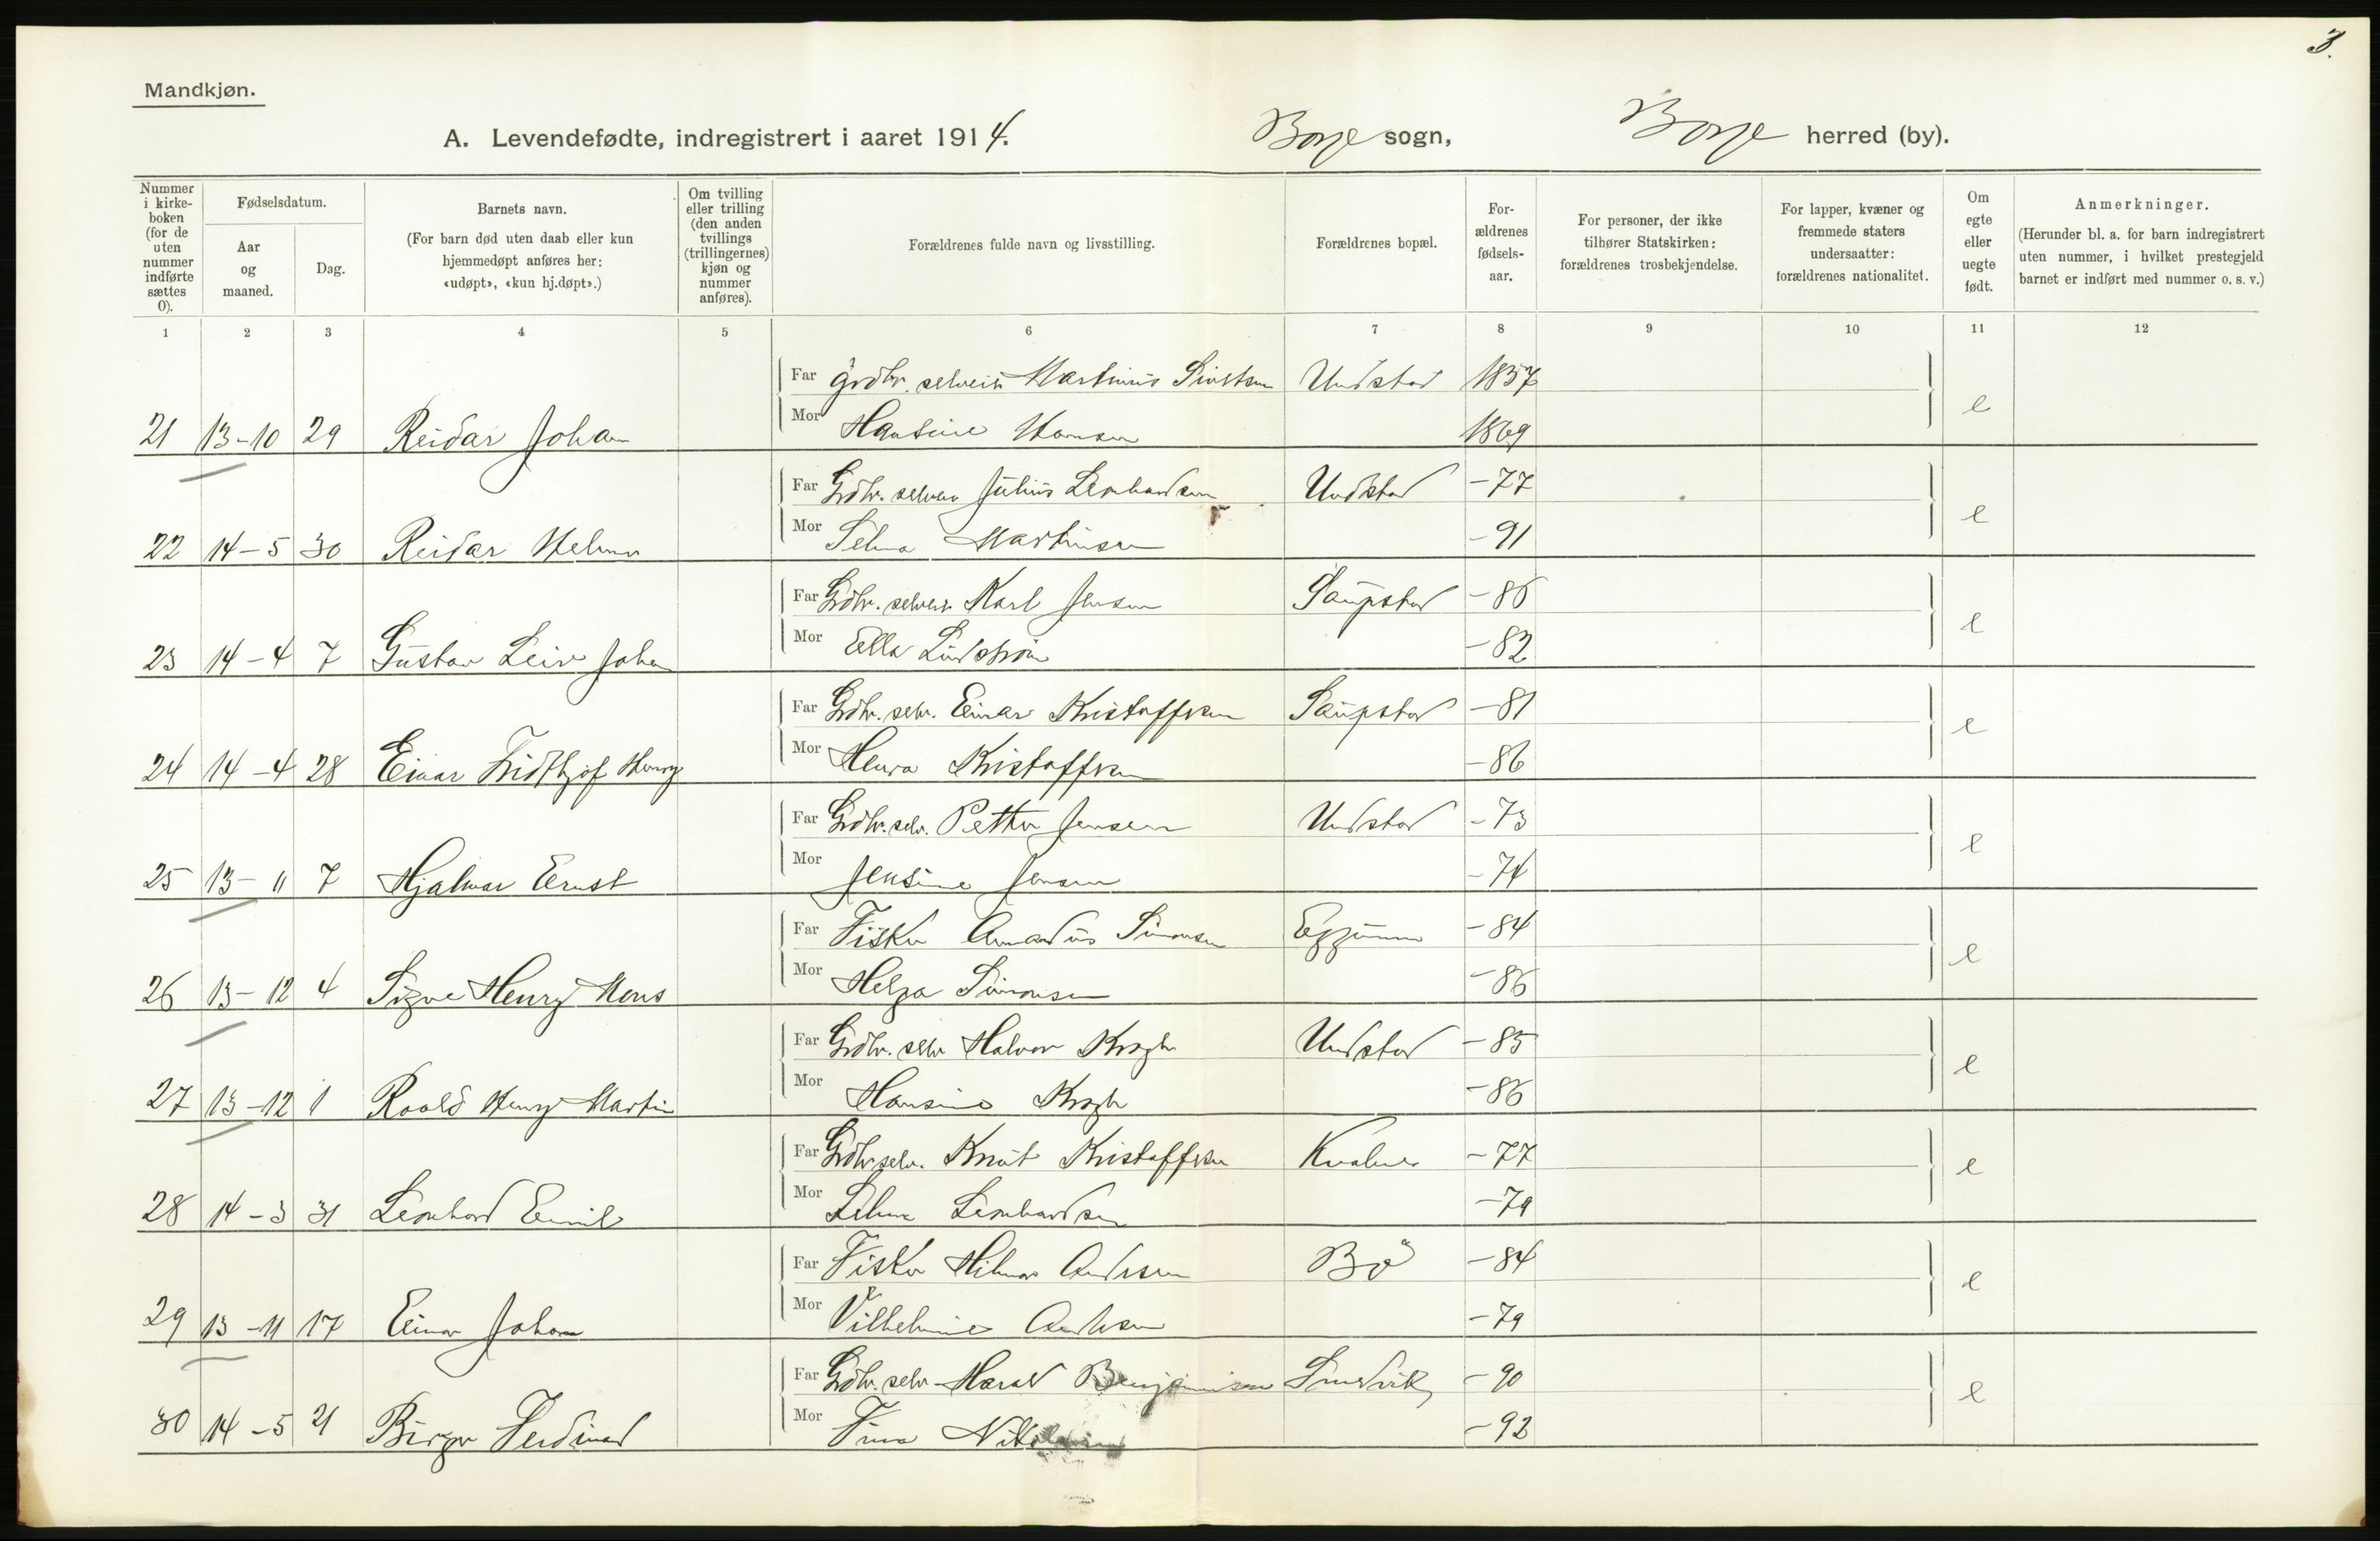 3.
Mandkjøn.
A. Levendefødte, indregistrert i aaret 1914. Borge sogn, Borge herred (by).
Nummer i kirke-boken (for de uten nummer indførte sættes 0).
Fødselsdatum.
Aar og maaned.
Dag.
Barnets navn.
(For barn død uten daab eller kun hjemmedøpt anføres her: «udøpt», «kun hj.døpt».)
Om tvilling eller trilling (den anden tvillings (trillingernes) kjøn og nummer anføres).
Forældrenes fulde navn og livsstilling.
Forældrenes bopæl.
For-ældrenes fødsels-aar.
For personer, der ikke tilhører Statskirken: forældrenes trosbekjendelse.
For lapper, kvæner og fremmede staters undersaatter: forældrenes nationalitet.
Om egte eller uegte født.
Anmerkninger.
(Herunder bl. a. for barn indregistrert uten nummer, i hvilket prestegjeld barnet er indført med nummer o. s. v.)
1 2 3 4 5 6 7 8 9 10 11 12
Far Grdbr. selveier Martinus Sivertsen Undstad 1857
21 13-10 29 Reidar Johan Mor Hansine Hansen 1869 e
Far Grdbr. selveier Julius Leonhardsen Undstad -77
22 14-5 30 Reidar Helmer Mor Selma Martinsen -91 e
Far Grdbr. selveier Karl Jensen Saupstad -86
23 14-4 7 Gustav Leiv Johan Mor Ella Lindstrøm -82 e
Far Grdbr. selv. Einar Kristoffersen Saupstad -81
24 14-4 28 Einar Fridthjof Henry Mor Kristoffersen -86 e
Far Grdbr. selv. Petter Jensen Undstad -73
25 13-11 7 Hjalmar Ernst Mor Jensine Jensen -74 e
Far Fisker Amandus Simonsen Eggum -84
26 13-12 4 Sigve Henry Mons Mor Helga Simonsen -86 e
Far Grdbr. selv Halvor Krogh Undstad -85
27 13-12 1 Roald Henry Martin Mor Hansine Krogh -86 e
Far Grdbr selv. Knut Kristoffersen Kvalnes -77
28 14-3 31 Leonhard Emil Mor Leonhardsen -79 e
Far Fisker Hilmar Andersen Bö -84
29 13-11 17 Einar Johan Mor Vilhelmine Andersen -79 e
Far Grdbr. selv Harald Benjaminsen Sundvik -90
30 14-5 21 Birger Ferdinand Mor Nikolaisen -92 e